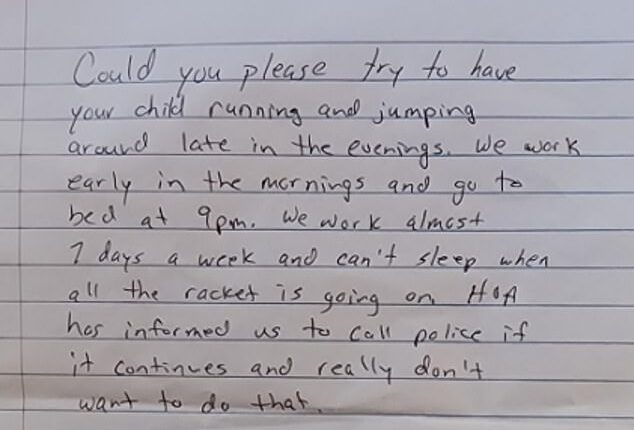 Could you please try to have
your child running and jumping
around late in the evenings. We work
early in the mornings and go to
bed at 9pm. We work almost
7 days a week and can't sleep when
all the racket is going on. HOA
has informed us to call police if
it continues and really don't
want to do that.